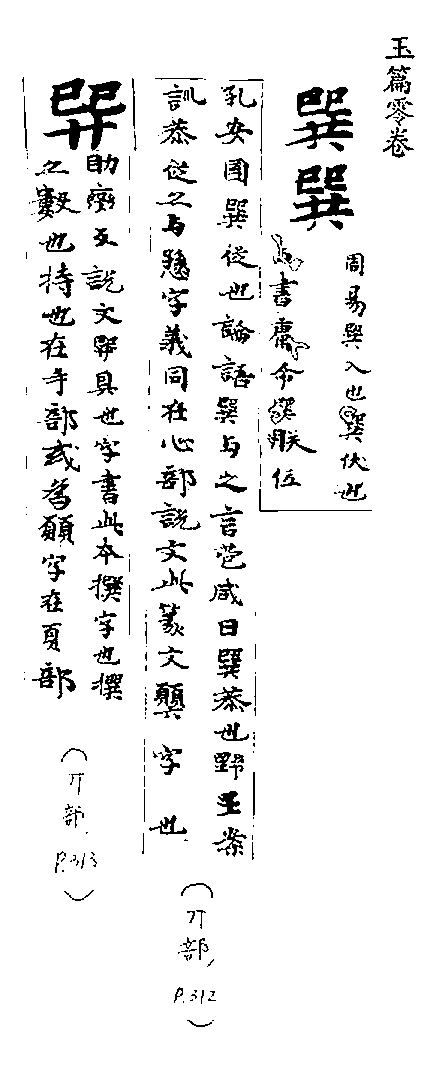 玉篇零卷
巽巽
周易巽入也巽伏也
尚書庸命巽朕位
孔安國巽從也論語巽与之言苞咸曰巽恭也野王案
訓恭從之与愻字義同在心部說文此篆文顨字也
(丌部, P.312)
助㢲反說文巽具也字書此本撰字也撰
之數也持也在手部或爲顨字在頁部
(丌部, P.313)